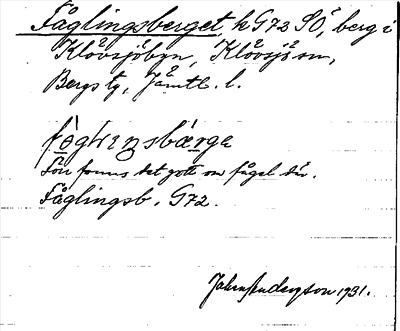 Fåglingsberget, k G72 SÖ, berg i
Klövsjöbyn, Klövsjö sn,
Bergs tg, Jämtl. l.
Förr fanns det gott om fågel där.
Fåglingsb. G72.
John Anderson 1931.